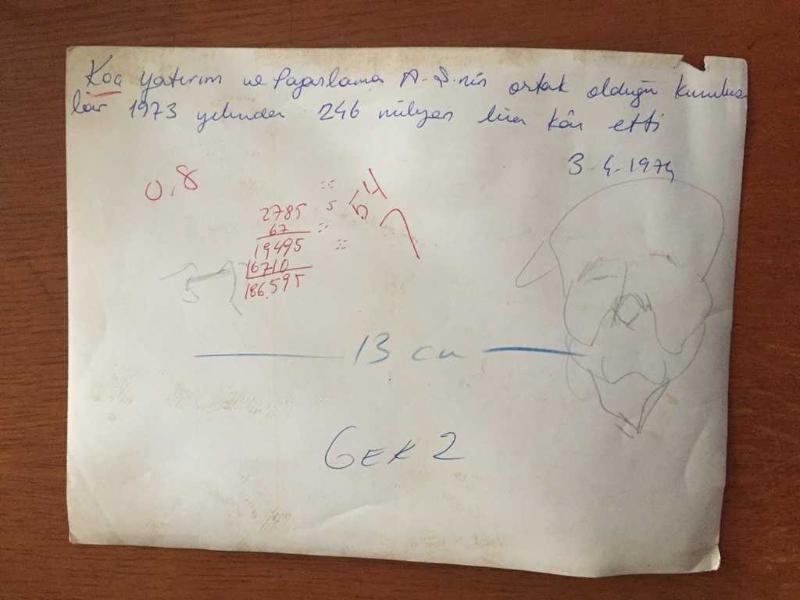 Koç yatırım ve Pazarlama A.Ş.nin ortak olduğu kuruluş
lar 1973 yılında 246 milyon lira kâr etti
3-4-1974
0.8
2785
67
19495
16710
186.595
13 cm
GEK 2